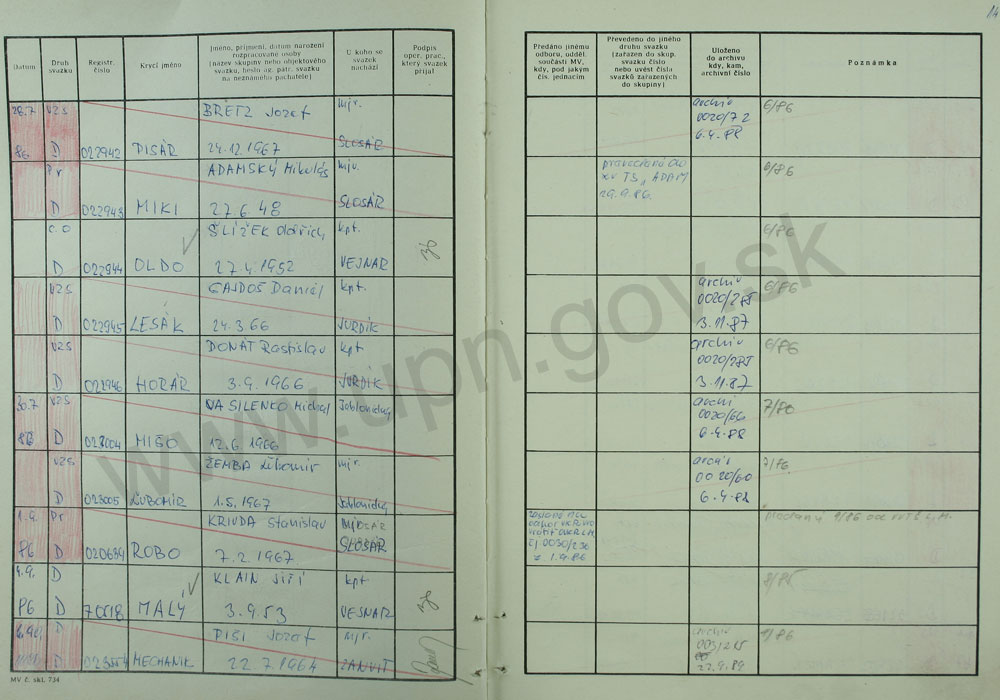 14
Datum
Druh svazku
Registr. číslo
Krycí jméno
Jméno, příjmení, datum narození
rozpracované osoby
(název skupiny nebo objektového
svazku, heslo ag. patr. svazku
na neznámého pachatele)
U koho se
svazek
nachází
Podpis
oper. prac.,
který svazek
přijal
Předáno jinému
odboru, odděl.
součásti MV,
kdy, pod jakým
čís. jednacím
Převedeno do jiného
druhu svazku
(zařazen do skup.
svazku číslo
nebo uvést čísla
svazků zařazených
do skupiny)
Uloženo
do archivu
kdy, kam,
archivní číslo
Poznámka
28.7 VZS BRETZ Jozef mjr. archiv 6/86
0020/72
86 D 022942 PISÁR 24.12.1967 SLOSÁR 6.4.88
Pr ADAMSKÝ Mikuláš mjr. 6/86
TS „ADAM
D 022943 MIKI 27.6.48 SLOSÁR 29.9.86
C.O ŠLÍŽEK Oldřich kpt. 6/86
D 022944 OLDO 27.4.1952 VEJNAR
VZS GAJDOŠ Daniel kpt. archiv 6/86
0020/285
D 022945 LESÁK 24.3.66 JURDÍK 3.11.87
VZS DONÁT Rastislav kpt archiv 6/86
D 022946 HORÁR 3.9.1966 JURDÍK 3.11.87
30.7 VZS VASILENKO Michal Jablonický archiv 7/86
0020/66
86 D 023004 MIŠO 12.6.1966 6.4.88
VZS ŽEMBA Ľubomír mjr. archiv 7/86
0020/60
D 023005 ĽUBOMÍR 1.5.1967 Jablonický 6.4.88
1.9. Pr KRIVDA Stanislav
86 D 020689 ROBO 7.2.1967 SLOSÁR
čj 0030/236
z 1.9.86
4.9. D KLAIN Jiří kpt
86 D MALÝ 3.9.53 VESNAR
D PISI Jozef mjr. archiv 9/86
D MECHANIK 22.7.1964 22.9.89
MV č. skl. 734
www.upn.gov.sk